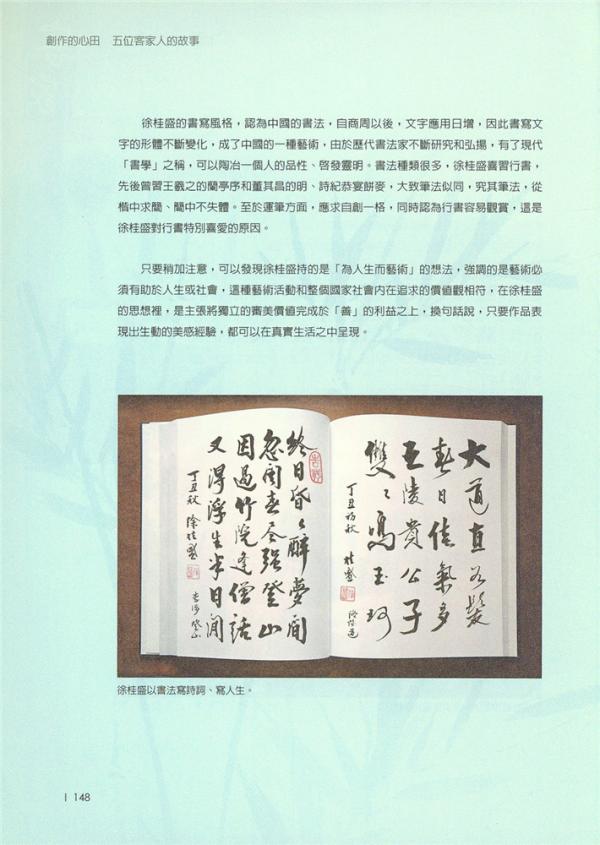 創作的心田　五位客家人的故事
徐桂盛的書寫風格，認為中國的書法，自商周以後，文字應用日增，因此書寫文
字的形體不斷變化，成了中國的一種藝術，由於歷代書法家不斷研究和弘揚，有了現代
「書學」之稱，可以陶冶一個人的品性、啓發靈明。書法種類很多，徐桂盛喜習行書，
先後曾習王羲之的蘭亭序和董其昌的明、詩紀恭宴餅麥，大致筆法似同，究其筆法，從
楷中求簡、簡中不失體。至於運筆方面，應求自創一格，同時認為行書容易觀賞，這是
徐桂盛對行書特別喜愛的原因。
只要稍加注意，可以發現徐桂盛持的是「為人生而藝術」的想法，強調的是藝術必
須有助於人生或社會，這種藝術活動和整個國家社會內在追求的價值觀相符，在徐桂盛
的思想裡，是主張將獨立的審美價值完成於「善」的利益之上，換句話說，只要作品表
現出生動的美感經驗，都可以在真實生活之中呈現。
大道直如髮
春日佳氣多
五陵貴公子
雙〻鳴玉珂
丁丑初秋 桂盛
洛陽道
終日昏〻醉夢間
忽聞春盡強登山
因過竹院逢僧話
又得浮生半日閒
丁丑秋 徐桂盛
李涉 登山
徐桂盛以書法寫詩詞、寫人生。
| 148